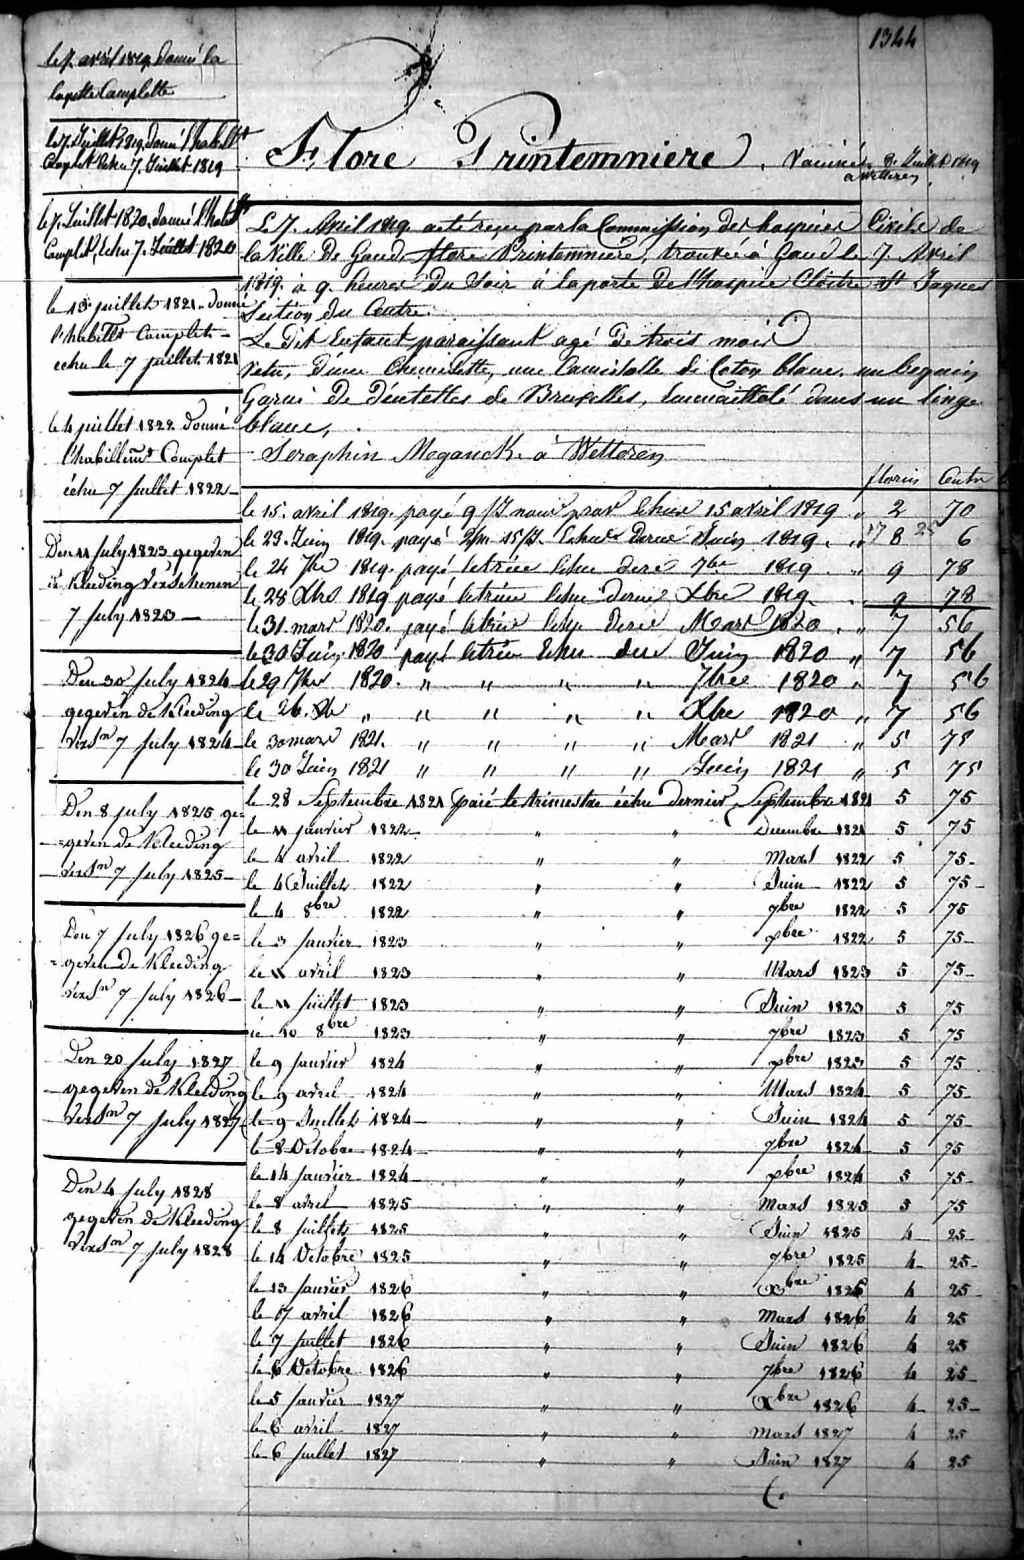 1344
le 7. avril 1819. donné la
layette Complette
le 7. Juillet 1819. donné l'habillt
Complet échu 7. Juillet 1819
le 7. Juillet 1820. donné l'habillt
Complet, Echu 7. Juillet 1820
le 13 juillet 1821. donné
l'habillt Complet
echu le 7 juillet 1821
le 4 juillet 1822 donné
l'habillemt Complet
échu 7 juillet 1822
Den 11 July 1823 gegeven
de kleeding verschenen
7 july 1823
Den 30 july 1824
gegeven de kleeding
versn 7 july 1824
Den 8 july 1825 ge=
=geven de kleeding
versn 7 july 1825
Den 7 july 1826 ge=
=geven de kleeding
versn 7 july 1826
Den 20 july 1827
gegeven de kleeding
versn 7 july 1827
Den 4 july 1828
gegeven de kleeding
versn 7 july 1828
Flore Printemniere. Vacciné 8. Juillet 1819
a Wetteren
Le 7. Avril 1819. a été reçu par la Commission des hospices Civils de
la Ville De Gand, Flore Printemniere, trouvée à Gand le 7. Avril
1819. à 9. heures Du Soir à la porte De l'hospice Cloitre St Jaques
Section du Centre.
Le Dit Enfant paraissant agé De trois mois
vetu, d'une Chemisette, une Camisolle de Coton blanc. un beguin
Garni De Dentelles de Bruxelles, Emmaillolé dans un linge
blanc,
Seraphin Meganck. à Wetteren
florins Cents
le 15. avril 1819. payé 9 echus 15 avril 1819 " 2 70
le 23. Juin 1819. payé échus Dernier Juin 1819. " 17 8 25 6
le 24 7bre 1819. payé letrice Echu dere 7bre 1819 " 9 78
le 28 Xbre 1819 payé letrice Echu Dernier Xbre 1819 " 9 78
le 31 mars 1820. payé letrice Echu Dere Mars 1820. " 7 56
le 30 Juin 1820 payé letrice Echu dere Juin 1820 " 7 56
le 29 7bre 1820. " " " " 7bre 1820 " 7 56
le 26. Xb " " " " " Xbre 1820 " 7 56
le 30 mars 1821. " " " " Mars 1821 " 5 75
le 30 Juin 1821 " " " " Juin 1821 " 5 75
le 28 Septembre 1821 paié le trimestre échu dernier Septembre 1821 5 75
le 11 janvier 1822 " " Decembre 1821 5 75
le 4 avril 1822 " " Mars 1822 5 75
le 4 Juillet 1822 " " Juin 1822 5 75
le 4 8bre 1822 " " 7bre 1822 5 75
le 3 janvier 1823 " " Xbre 1822 5 75
le 11 avril 1823 " " Mars 1823 5 75
le 11 juillet 1823 " " Juin 1823 5 75
le 10 8bre 1823 " " 7bre 1823 5 75
le 9 janvier 1824 " " Xbre 1823 5 75
le 9 avril 1824 " " Mars 1824 5 75
le 9 Juillet 1824 " " Juin 1824 5 75
le 8 Octobre 1824 " " 7bre 1824 5 75
le 14 janvier 1824 " " Xbre 1824 5 75
le 8 avril 1825 " " Mars 1825 5 75
le 8 juillet 1825 " " Juin 1825 4 25
le 14 Octobre 1825 " " 7bre 1825 4 25
le 13 janvier 1826 " " Xbre 1825 4 25
le 17 avril 1826 " " Mars 1826 4 25
le 7 juillet 1826 " " Juin 1826 4 25
le 6 Octobre 1826 " " 7bre 1826 4 25
le 5 janvier 1827 " " Xbre 1826 4 25
le 6 avril 1827 " " Mars 1827 4 25
le 6 juillet 1827 " " Juin 1827 4 25